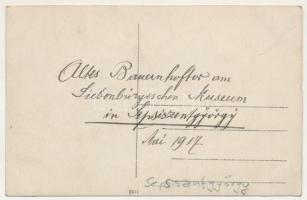 Altes Bauernhofter am
Siebenbürgischen Museum
in Sepsiszentgyörgy
Mai 1917
Sepsiszentgyörgy